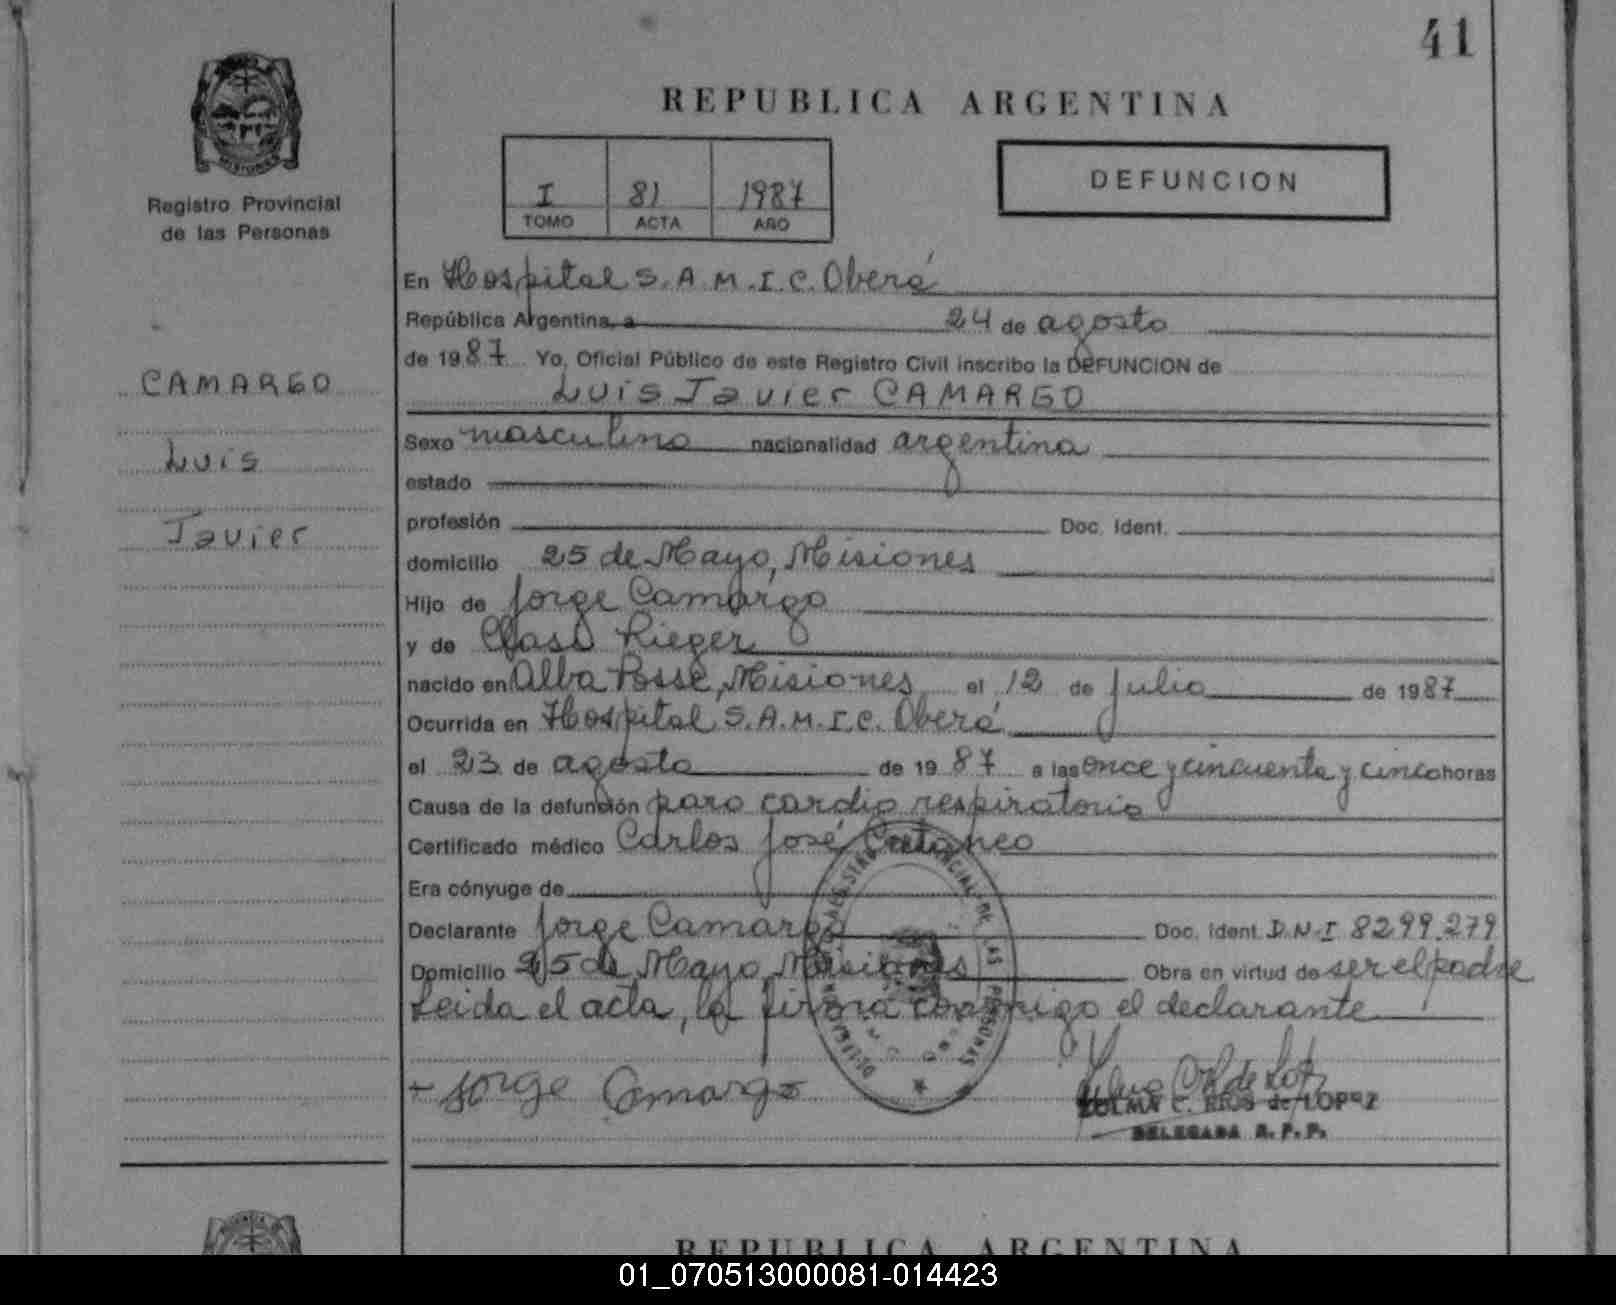 41
REPUBLICA ARGENTINA
MISIONES
Registro Provincial
de las Personas
I 81 1987
TOMO ACTA AÑO
DEFUNCION
CAMARGO
Luis
Javier
En Hospital S.A.M.I.C. Oberá
República Argentina, a 24 de agosto
de 1987 Yo, Oficial Público de este Registro Civil inscribo la DEFUNCION de
Luis Javier CAMARGO
Sexo masculino nacionalidad argentina
estado
profesión Doc. Ident.
domicilio 25 de Mayo, Misiones
Hijo de Jorge Camargo
y de Rieger
nacido en Alba Posse, Misiones el 12 de julio de 1987
Ocurrida en Hospital S.A.M.I.C. Oberá
el 23 de agosto de 1987 a las once y cincuenta y cinco horas
Causa de la defunción paro cardio respiratorio
Certificado médico Carlos José Cataneo
Era cónyuge de
Declarante Jorge Camargo Doc. Ident. D.N.I 8299.279
Domicilio 25 de Mayo, Misiones Obra en virtud de ser el padre
Leida el acta, la firma conmigo el declarante
Jorge Camargo
ZULMA C. RIOS de LOPEZ
DELEGADA R. P. P.
REPUBLICA ARGENTINA
01_070513000081-014423